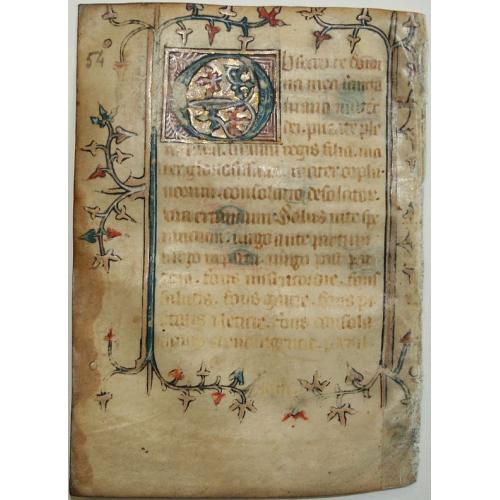 54
Obsecro te domi
na mea
maria mater
dei. pietate ple
regis filia. ma
ter gloriosissima. mater orpha
norum. consolatio desolator
via errantium. salus in te spe
rancium. virgo ante partum
virgo in partu. virgo post par
tum. fons misericordie. fons
salutis. fons gracie. fons pi
etatis et leticie. fons consola
indulgencie. per il